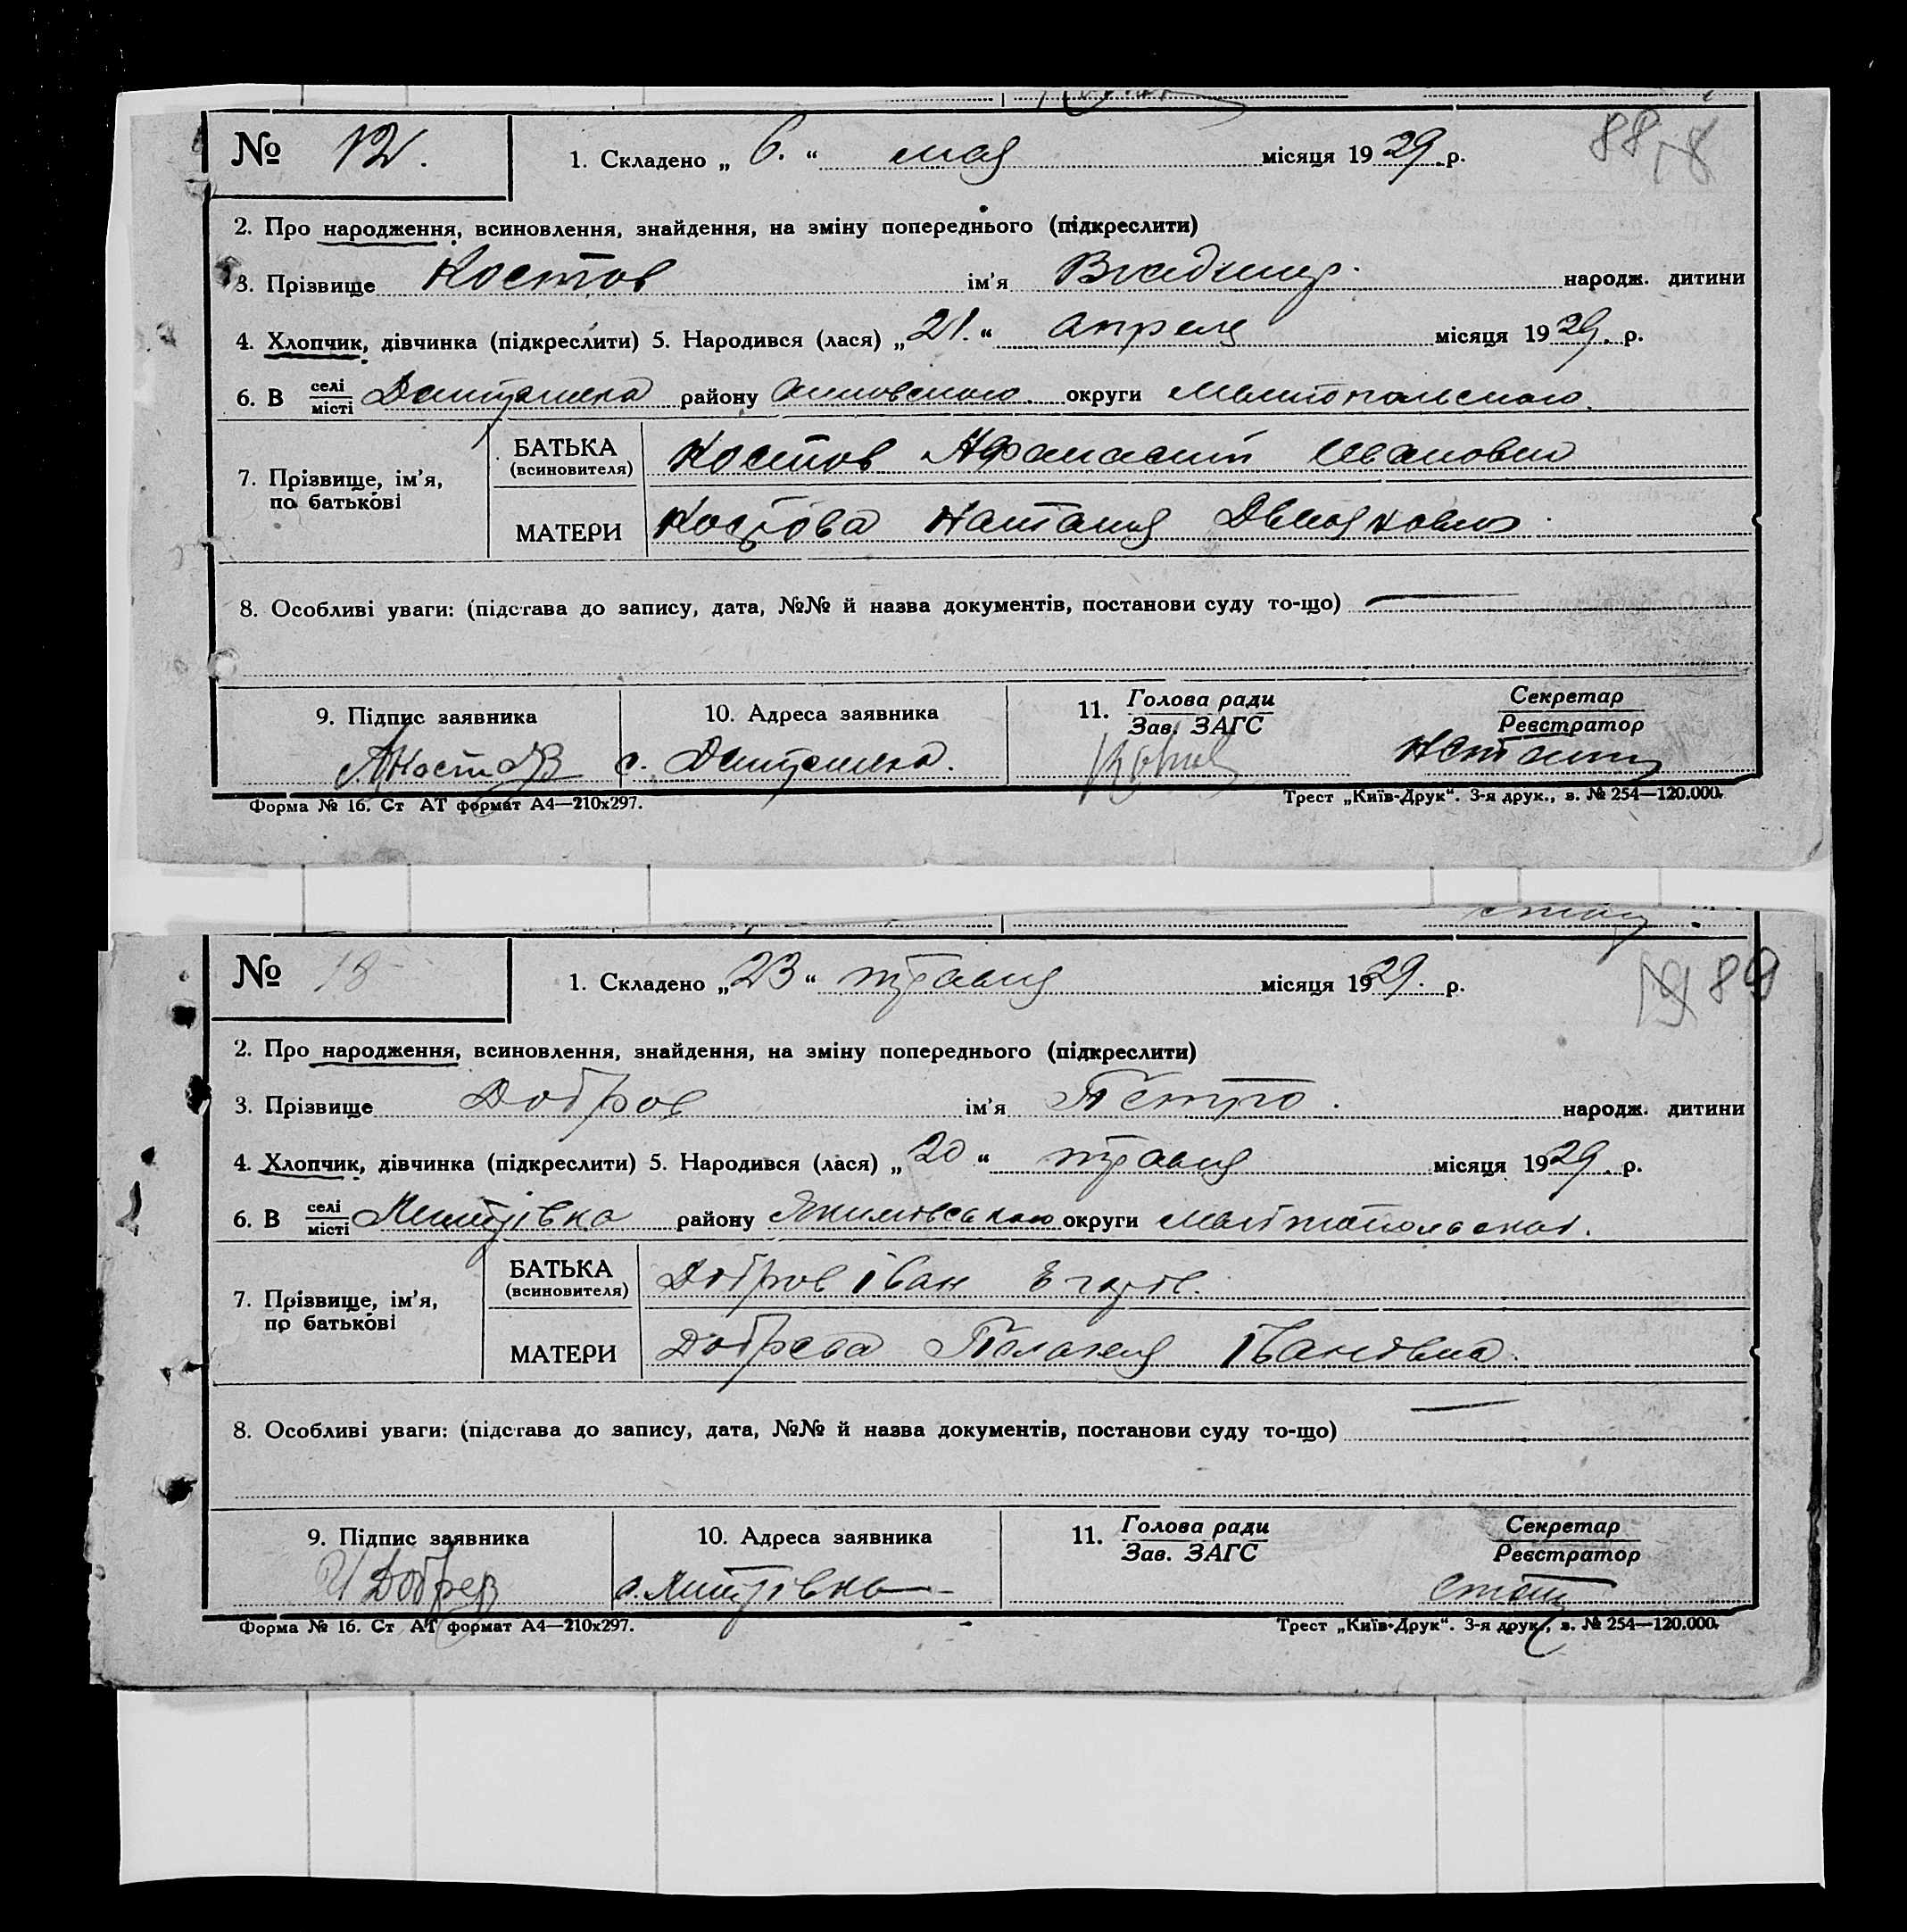 88
№ 12. 1. Складено „ 6. “ мая місяця 1929. р.
2. Про народження, всиновлення, знайдення, на зміну попереднього (підкреслити)
3. Прізвище Костов ім'я Владимир. народж. дитини
4. Хлопчик, дівчинка (підкреслити) 5. Народився (лася) „ 21. “ апреля місяця 1929. р.
6. В селі/місті району округи Мелитопольского.
7. Прізвище, ім'я, по батькові БАТЬКА (всиновителя) Костов Афанасий Иванович
МАТЕРИ Костова Наталия
8. Особливі уваги: (підстава до запису, дата, №№ й назва документів, постанови суду то-що)
9. Підпис заявника 10. Адреса заявника 11. Голова ради/Зав. ЗАГС Секретар/Реєстратор
АКостов с.
Форма № 16. Ст АТ формат А4—210х297. Трест „Київ-Друк“. 3-я друк., з. № 254—120.000.
89
№ 18 1. Складено „ 23 “ травня місяця 1929. р.
2. Про народження, всиновлення, знайдення, на зміну попереднього (підкреслити)
3. Прізвище Добров ім'я Петро. народж. дитини
4. Хлопчик, дівчинка (підкреслити) 5. Народився (лася) „ 20 “ травня місяця 1929. р.
6. В селі/місті Дмитрівка району Якимівського округи
7. Прізвище, ім'я, по батькові БАТЬКА (всиновителя) Добров Іван Егоров.
МАТЕРИ Доброва Пелагея Івановна.
8. Особливі уваги: (підстава до запису, дата, №№ й назва документів, постанови суду то-що)
9. Підпис заявника 10. Адреса заявника 11. Голова ради/Зав. ЗАГС Секретар/Реєстратор
И Добрев с. Дмитрівка
Форма № 16. Ст АТ формат А4—210х297. Трест „Київ-Друк“. 3-я друк., з. № 254—120.000.